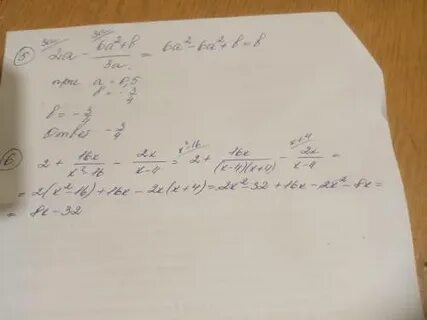 5) 2a - (6a²+b)/3a = 6a² - 6a² + b = b
при a = 0,5
b = -3/4
b = -3/4
Ответ -3/4
6) 2 + 16x/(x²-16) - 2x/(x-4) = 2 + 16x/((x-4)(x+4)) - 2x/(x-4) =
= 2(x²-16)+16x-2x(x+4) = 2x²-32+16x-2x²-8x =
= 8x-32